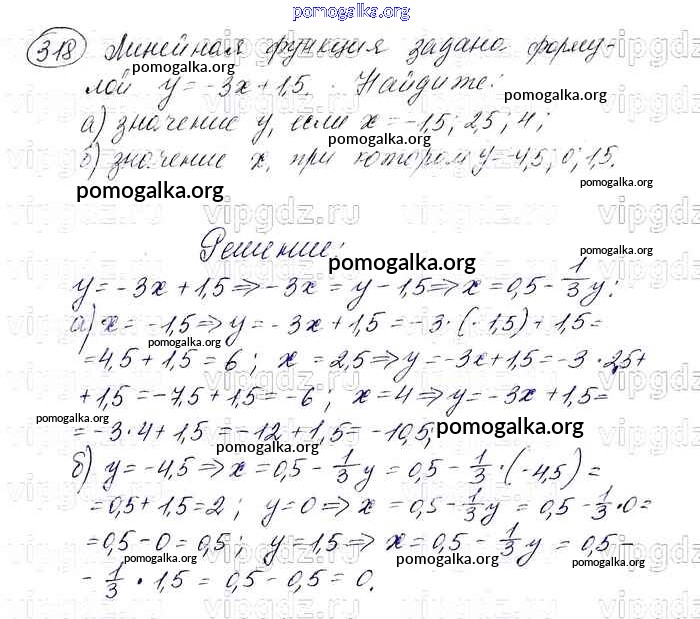 pomogalka.org
318 Линейная функция задана форму-
pomogalka.org
лой y = -3x + 1,5. Найдите:
pomogalka.org
а) значение y, если x = -1,5; 2,5; 4;
pomogalka.org
б) значение x, при котором y = -4,5; 0; 1,5.
pomogalka.org
vipgdz.ru
Решение:
pomogalka.org
y = -3x + 1,5 ⇒ -3x = y - 1,5 ⇒ x = 0,5 - 1/3 y;
pomogalka.org
а) x = -1,5 ⇒ y = -3x + 1,5 = -3 · (-1,5) + 1,5 =
pomogalka.org
= 4,5 + 1,5 = 6; x = 2,5 ⇒ y = -3x + 1,5 = -3 · 2,5 +
pomogalka.org
+ 1,5 = -7,5 + 1,5 = -6; x = 4 ⇒ y = -3x + 1,5 =
pomogalka.org
= -3 · 4 + 1,5 = -12 + 1,5 = -10,5;
pomogalka.org
б) y = -4,5 ⇒ x = 0,5 - 1/3 y = 0,5 - 1/3 · (-4,5) =
pomogalka.org
= 0,5 + 1,5 = 2; y = 0 ⇒ x = 0,5 - 1/3 y = 0,5 - 1/3 · 0 =
pomogalka.org
= 0,5 - 0 = 0,5; y = 1,5 ⇒ x = 0,5 - 1/3 y = 0,5 -
pomogalka.org
pomogalka.org
- 1/3 · 1,5 = 0,5 - 0,5 = 0.
pomogalka.org